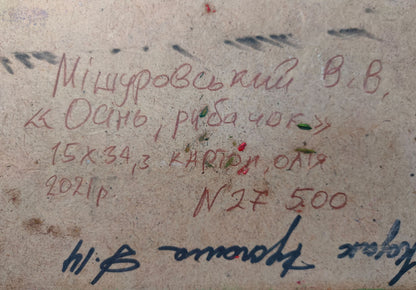 Мішуровський В.В.
«Осінь, рибачок»
15х34,3 картон, олія
2021р
N 27 500